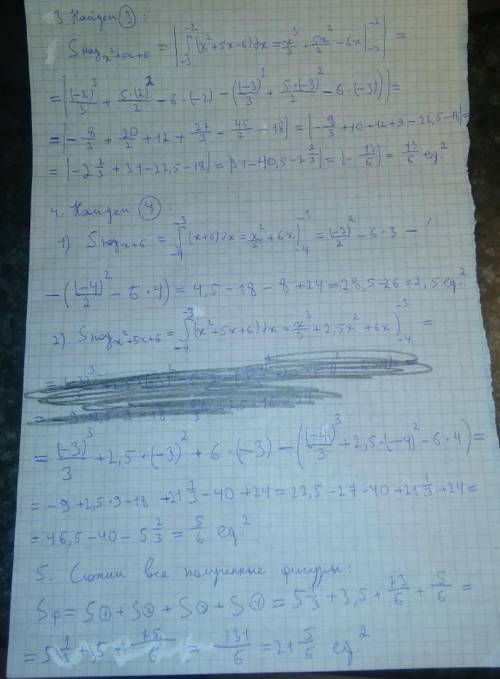 3. Найдем ③:
S под x²+5x+6 = |∫₋₃⁻² (x²+5x-6)dx = x³/3 + 5x²/2 - 6x|₋₃⁻²| =
= |(-2)³/3 + 5·(-2)²/2 - 6·(-2) - ((-3)³/3 + 5·(-3)²/2 - 6·(-3))| =
= |-8/3 + 20/2 + 12 + 27/3 - 45/2 - 18| = |-8/3 + 10 + 12 + 9 - 22,5 - 18| =
= |-2 2/3 + 31 - 22,5 - 18| = |31 - 40,5 - 2 2/3| = |-73/6| = 73/6 ед²
4. Найдем ④:
1) S под x+6 = ∫₋₄⁻³ (x+6)dx = x²/2 + 6x|₋₄⁻³ = (-3)²/2 - 6·3 -
- ((-4)²/2 - 6·4) = 4,5 - 18 - 8 + 24 = 28,5 - 26 = 2,5 ед²
2) S под x²+5x+6 = ∫₋₄⁻³ (x²+5x+6)dx = x³/3 + 2,5x² + 6x)₋₄⁻³ =
= (-3)³/3 + 2,5·(-3)² + 6·(-3) - ((-4)³/3 + 2,5·(-4)² - 6·4) =
= -9 + 2,5·9 - 18 + 21 1/3 - 40 + 24 = 22,5 - 27 - 40 + 21 1/3 + 24 =
= 46,5 - 40 - 5 2/3 = 5/6 ед²
5. Сложим все полученные фигуры:
Sф = S① + S② + S③ + S④ = 5 1/3 + 3,5 + 73/6 + 5/6 =
= 5 1/3 + 3,5 + /6 = 131/6 = 21 5/6 ед.²